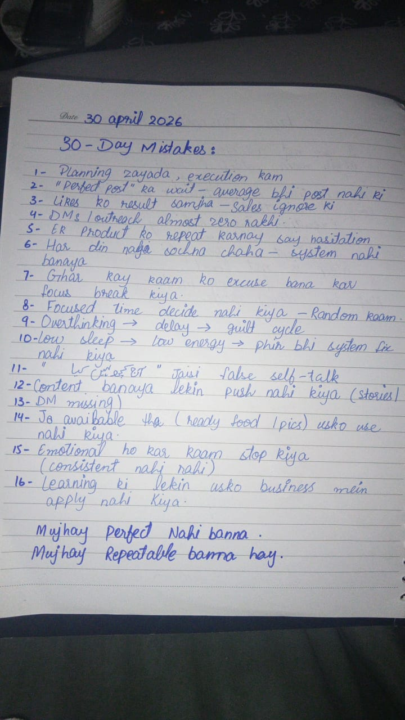 Date 30 april 2026
30-Day Mistakes:
1- Planning zayada, execution kam
2- "Perfect post" ka wait - average bhi post nahi ki
3- Likes ko result samjha - Sales ignore ki
4- DMs / outreach almost zero rakhi.
5- EK Product ko repeat karnay say hasitation
6- Har din naya sochna chaha - system nahi
banaya
7- Ghar kay kaam ko excuse bana kar
focus break kiya.
8- Focused time decide nahi kiya - Random kaam.
9- Overthinking → delay → guilt cycle
10- Low sleep → low energy → phir bhi system fix
nahi kiya
11- " " Jaisi false self-talk
12- Content banaya lekin push nahi kiya (stories/
13- DM missing)
14- Jo available tha (ready food / pics) usko use
nahi kiya.
15- Emotional ho kar kaam stop kiya
(consistent nahi rahi)
16- Learning ki lekin usko business mein
apply nahi Kiya.
Mujhay Perfect Nahi banna.
Mujhay Repeatable banna hay.